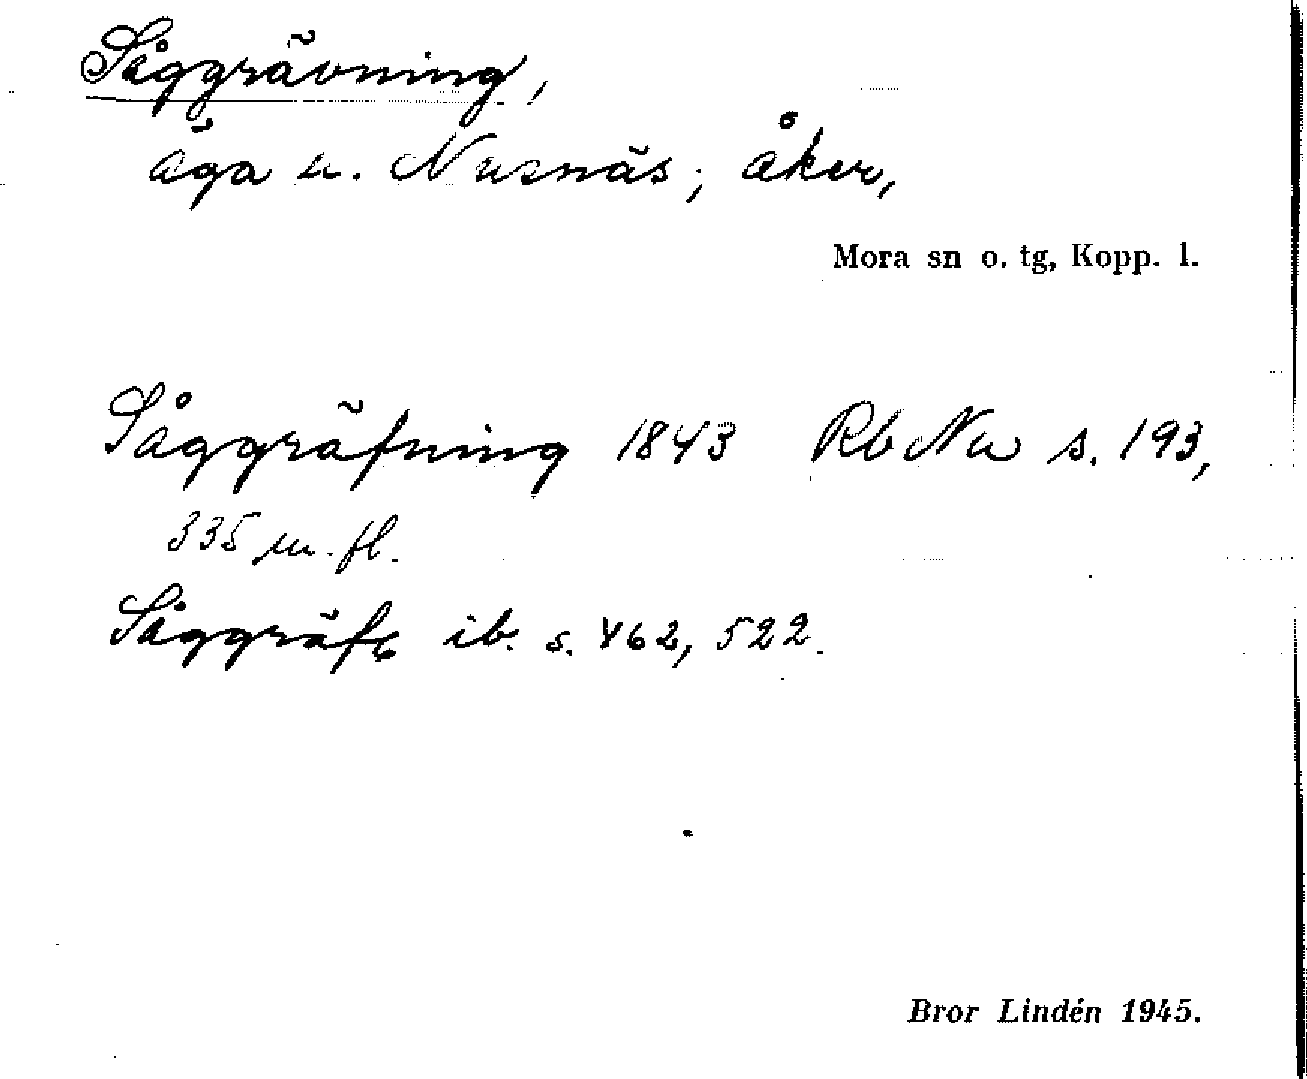 Såggrävning,
äga u. Nusnäs; åker,
Mora sn o. tg, Kopp. l.
Såggräfning 1843 Rb Nu s. 193,
335 m. fl.
Såggräfs ib. s. 462, 522.
Bror Lindén 1945.